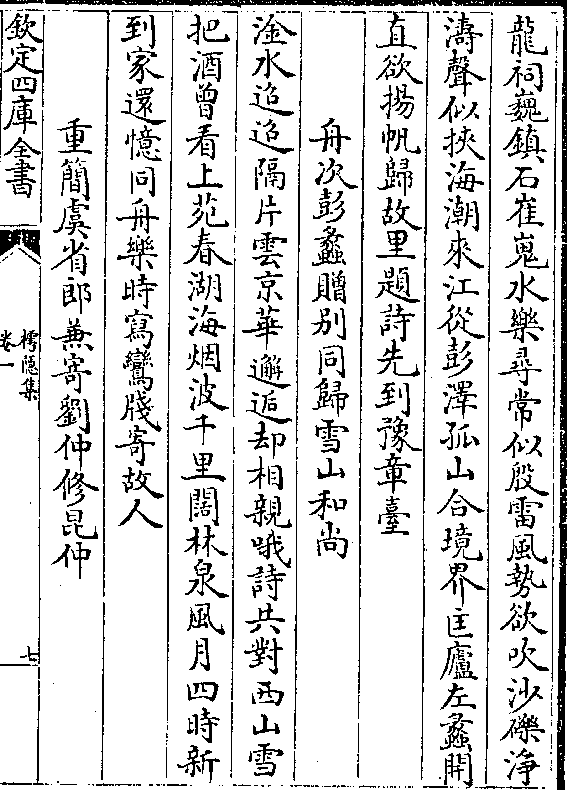 龍祠巍鎮石崔嵬水樂尋常似殷雷風勢欲吹沙礫淨
濤聲似挾海潮來江從彭澤孤山合境界匡廬左蠡開
直欲揚帆歸故里題詩先到豫章臺
舟次彭蠡贈别同歸雪山和尚
淦水迢迢隔片雲京華邂逅却相親哦詩共對西山雪
把酒曾看上苑春湖海烟波千里闊林泉風月四時新
到家還憶同舟樂時寫鸞牋寄故人
重簡虞省郎兼寄劉仲修昆仲
欽定四庫全書
樗隱集
卷一
七